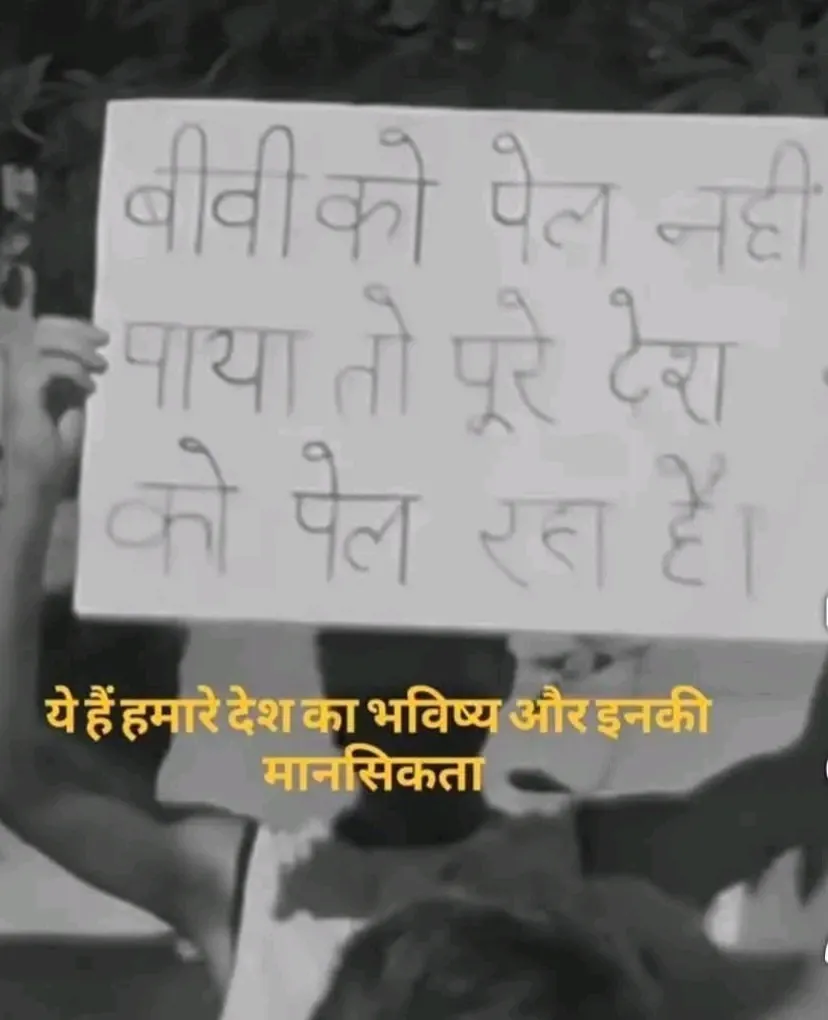 बीवी को पेल नहीं
पाया तो पूरे देश
को पेल रहा है।
ये हैं हमारे देश का भविष्य और इनकी
मानसिकता